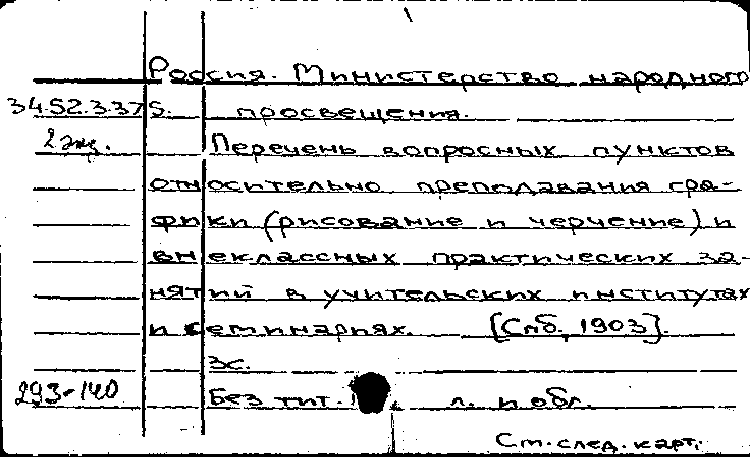 Россия. Министерство народного
34.52.3.375. просвещения.
2 экз. Перечень вопросных пунктов
относительно преподавания гра-
фики (рисование и черчение) и
внеклассных практических за-
нятий в учительских институтах
и семинариях. [Спб., 1903].
3с.
293-140 Без тит. л. и обл.
См. след. карт.